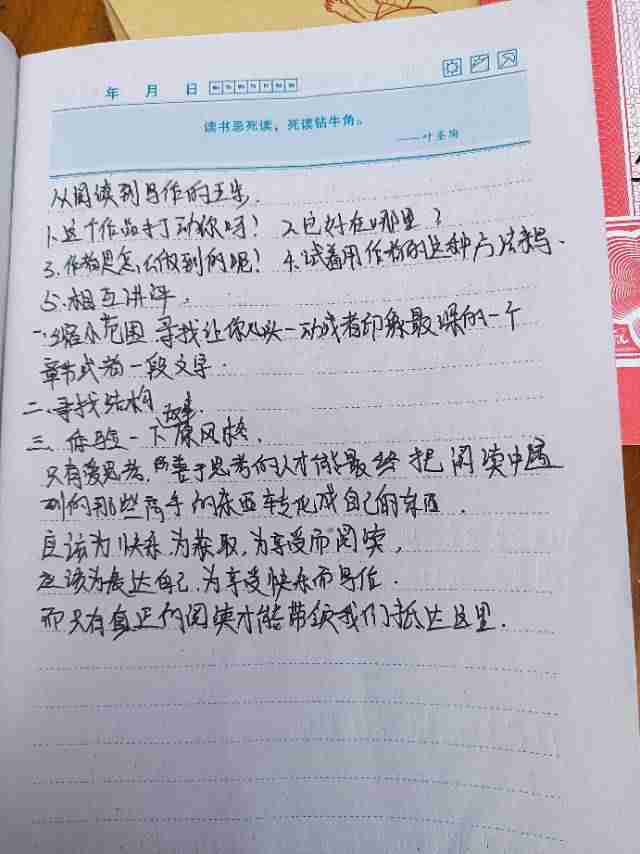 年 月 日
读书忌死读，死读钻牛角。
——叶圣陶
从阅读到写作的五步.
1.这个作品打动你吗？ 2.它好在哪里？
3.作者是怎么做到的呢？ 4.试着用作者的这种方法来写.
5.相互讲评.
一.缩小范围 寻找让你心头一动或者印象最深的一个
章节或者一段文字.
二.寻找结构
三.体验一下原风格.
只有爱思考,善于思考的人才能最终把阅读中遇
到的那些高手的东西转化成自己的东西.
应该为快乐,为获取,为享受而阅读,
应该为表达自己,为享受快乐而写作.
而只有真正的阅读才能带领我们抵达这里.